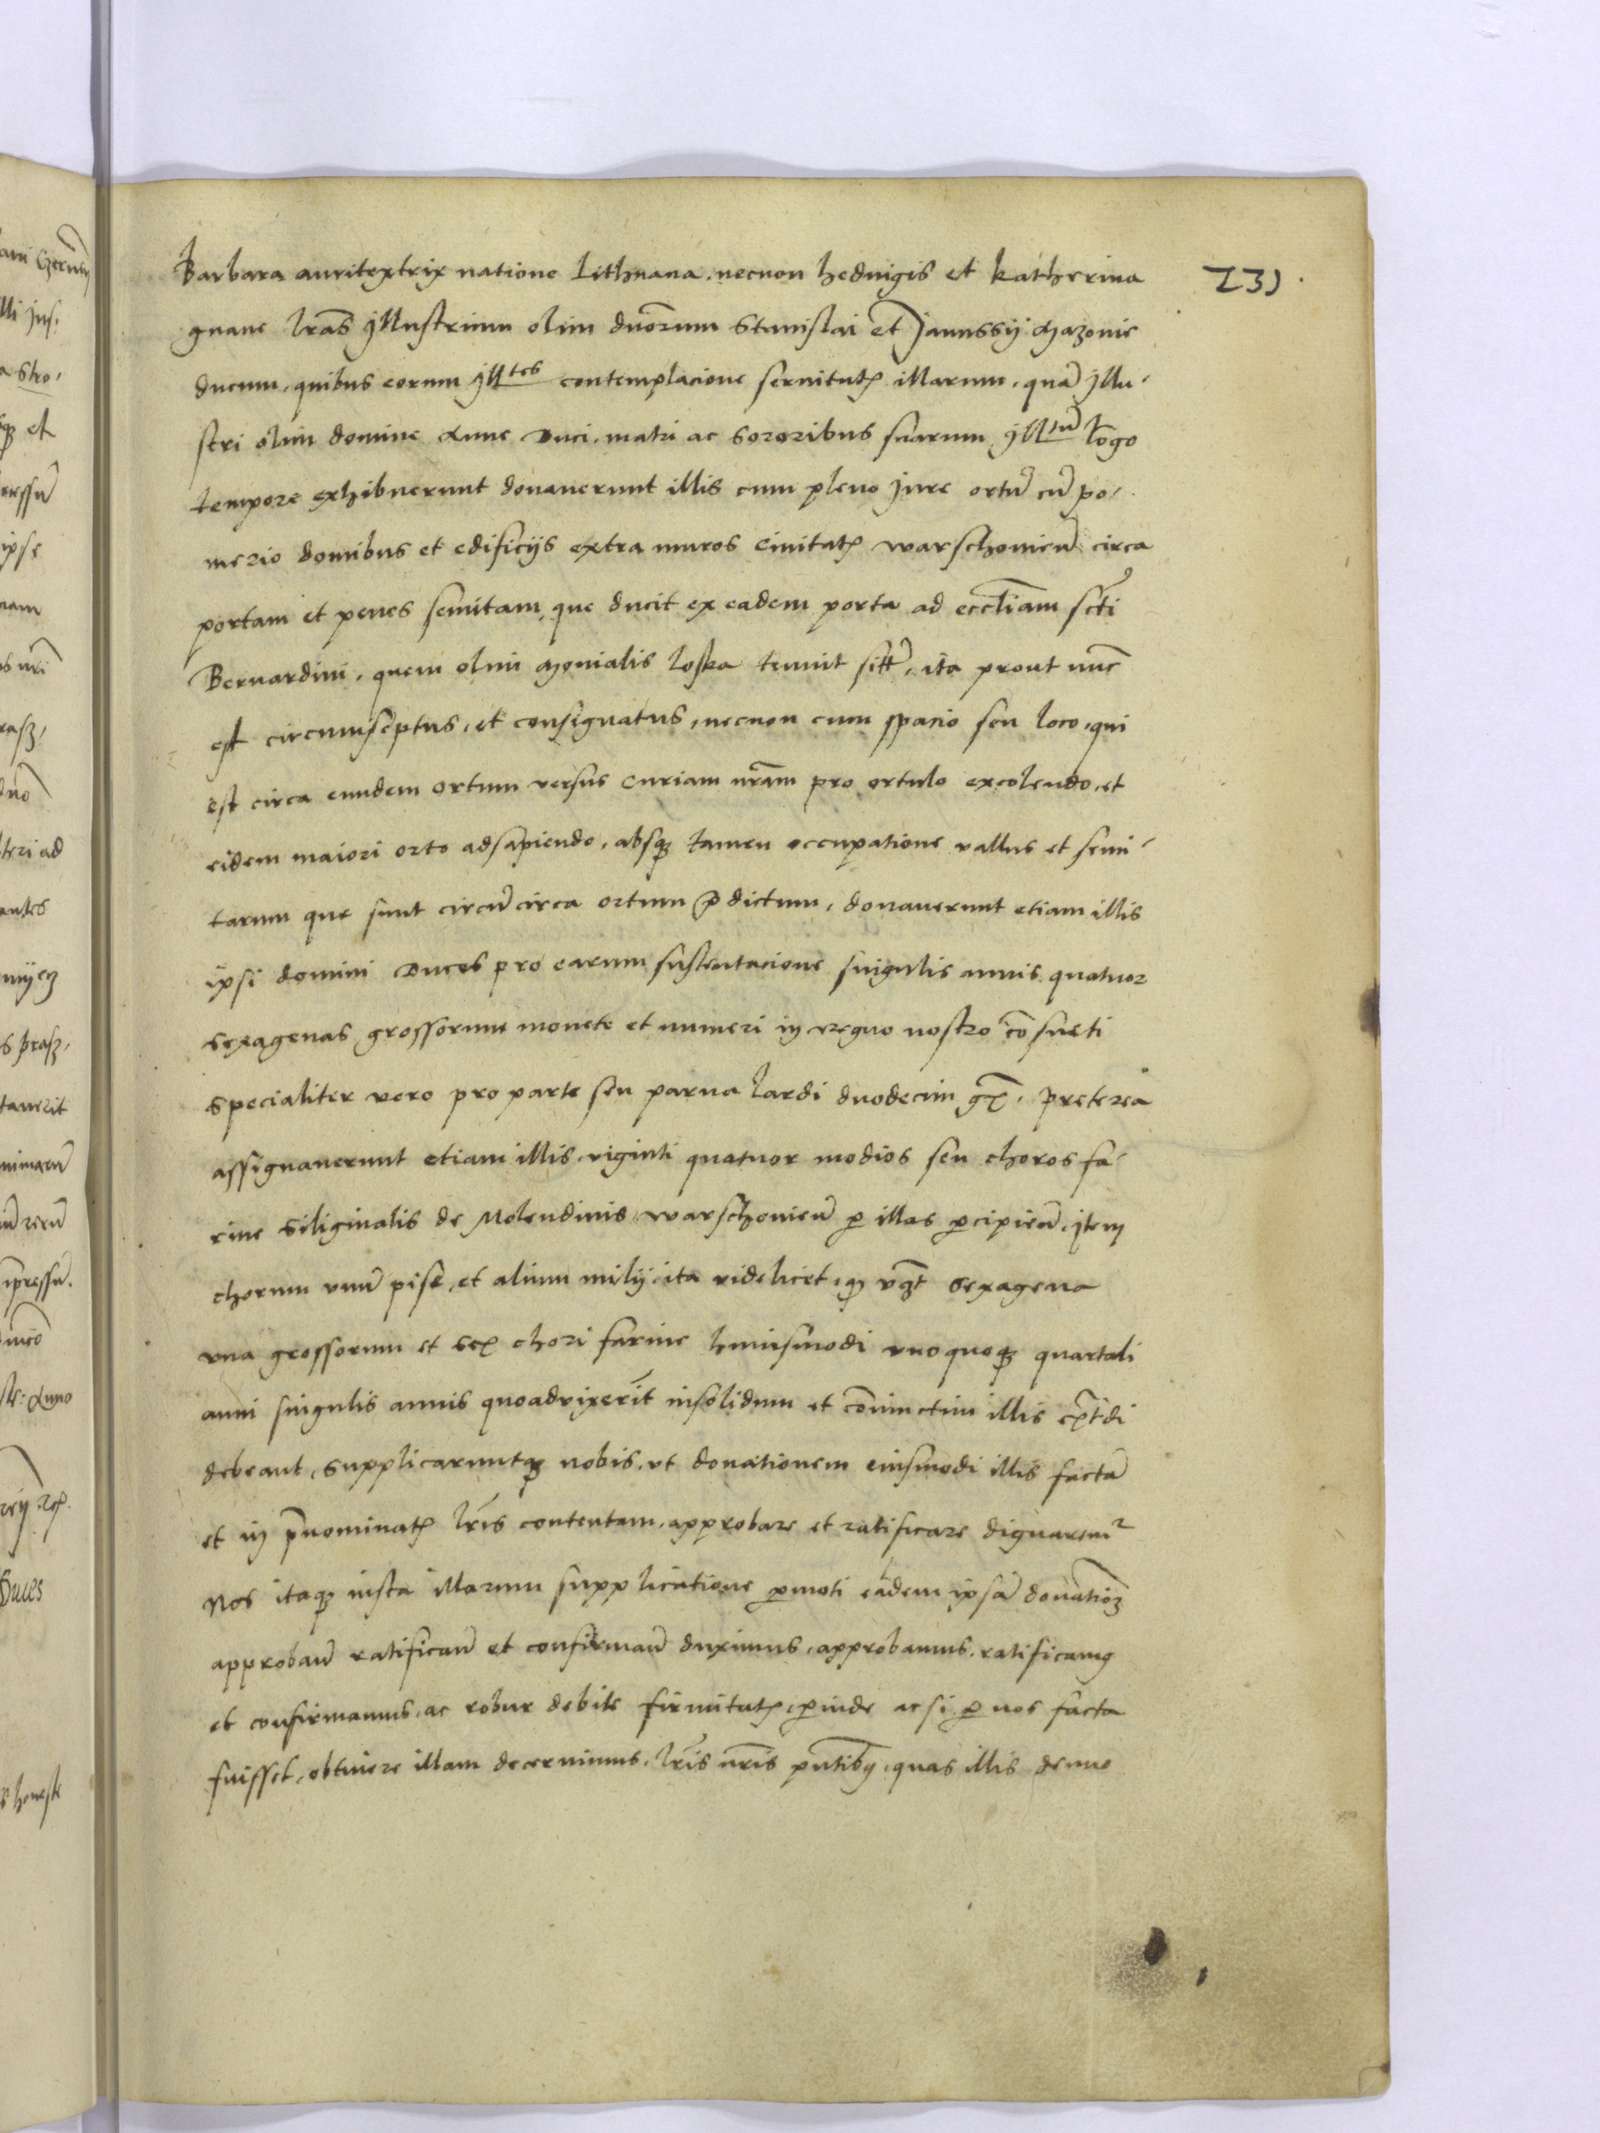 Barbara auritextrix natione Lithuana, necnon heduigis et katherina 231.
gnaue lras Illustrium olim duorum Stanislai et Janussij Mazouie
ducum, quibus eorum Illtes contemplacione seruitutum illarum, quas Illu-
stri olim domine Anne Duci, matri ac sororibus suarum Illtum longo
tempore exhibuerunt donauerunt illis cum pleno Jure ortum cum po-
merio domibus et edificijs extra muros Ciuitatis warschouien circa
portam et penes semitam, que ducit ex eadem porta ad eccliam scti
Bernardini, quem olim Monialis loska tenuit sitt, ita prout nunc
est circumseptus, et consignatus, necnon cum spacio seu loco, qui
est circa eundem ortum versus Curiam nram pro ortulo excolendo, et
eidem maiori orto adsapiendo, absque tamen occupatione vallus et semi-
tarum que sunt circum circa ortum predictum, donauerunt etiam illis
ipsi domini Duces pro earum sustentacione singulis annis quatuor
sexagenas grossorum monete et numeri in regno nostro consueti
specialiter vero pro parte seu parna lardi duodecim gr. preterea
assignauerunt etiam illis viginti quatuor modios seu choros fa-
rine siliginalis de Molendinis warschouien per illas percipien, Item
chorum vnum pise, et alium milij, ita videlicet, quod vgt sexagena
vna grossorum et sex chori farine huiusmodi vnoquoque quartali
anni singulis annis quoadvixerint insolidum et coniunctim illis
debeant, supplicaruntque nobis, vt donationem eiusmodi illis factam
et in prenominatis lris contentam, approbare et ratificare dignaremur
Nos itaque iusta illarum supplicatione permoti eadem ipsam donationem
approban ratifican et confirman duximus, approbamus, ratificamus
et confirmamus, ac robur debite firmitatis, perinde ac si per nos facta
fuisset, obtinere illam decernimus, lris nris pntibus, quas illis denuo